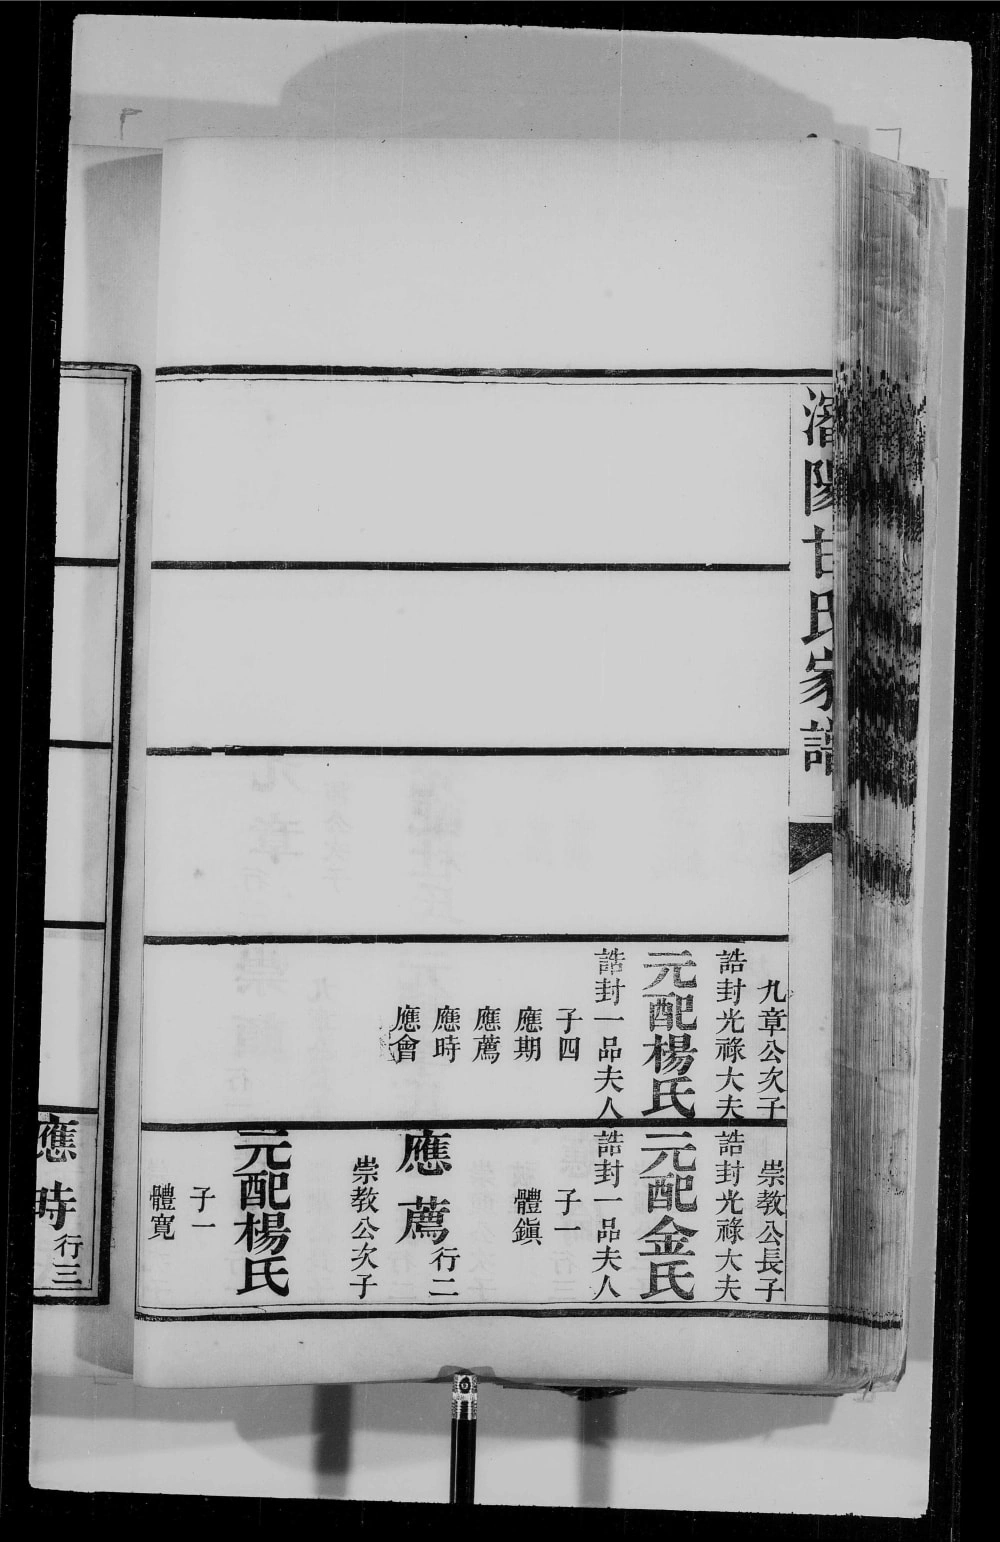 瀋陽甘氏家譜
九章公次子
誥封光祿大夫
元配楊氏
誥封一品夫人
子四
應期
應薦
應時
應會
崇教公長子
誥封光祿大夫
元配金氏
誥封一品夫人
子一
體鎭
應薦行二
崇教公次子
元配楊氏
子一
體寬
應時行三